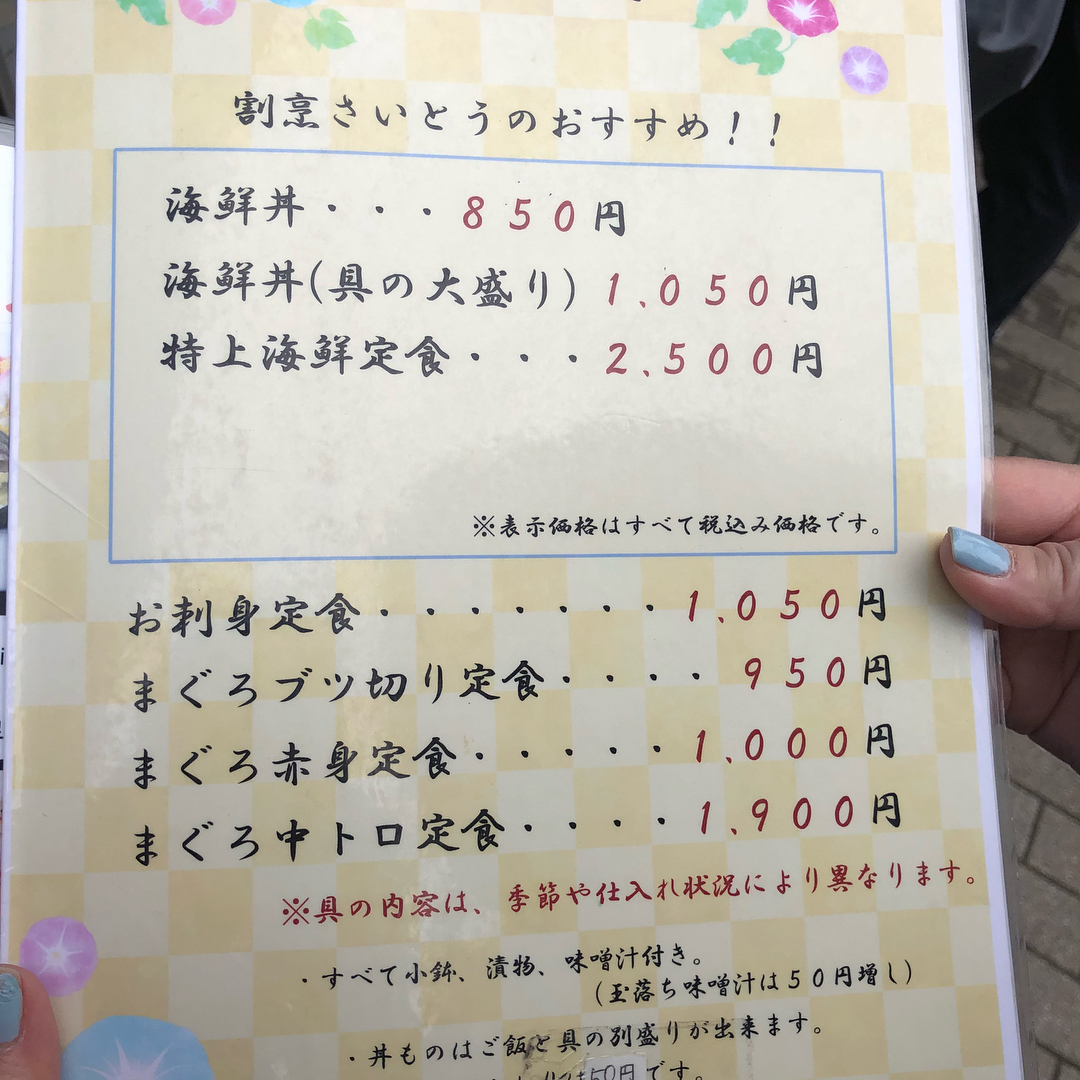 割烹さいとうのおすすめ！！
海鮮丼・・・８５０円
海鮮丼(具の大盛り) １，０５０円
特上海鮮定食・・・２，５００円
※表示価格はすべて税込み価格です。
お刺身定食・・・・・・・１，０５０円
まぐろブツ切り定食・・・・９５０円
まぐろ赤身定食・・・・・１，０００円
まぐろ中トロ定食・・・・１，９００円
※具の内容は、季節や仕入れ状況により異なります。
・すべて小鉢、漬物、味噌汁付き。
（玉落ち味噌汁は５０円増し）
・丼ものはご飯と具の別盛りが出来ます。
50円です。